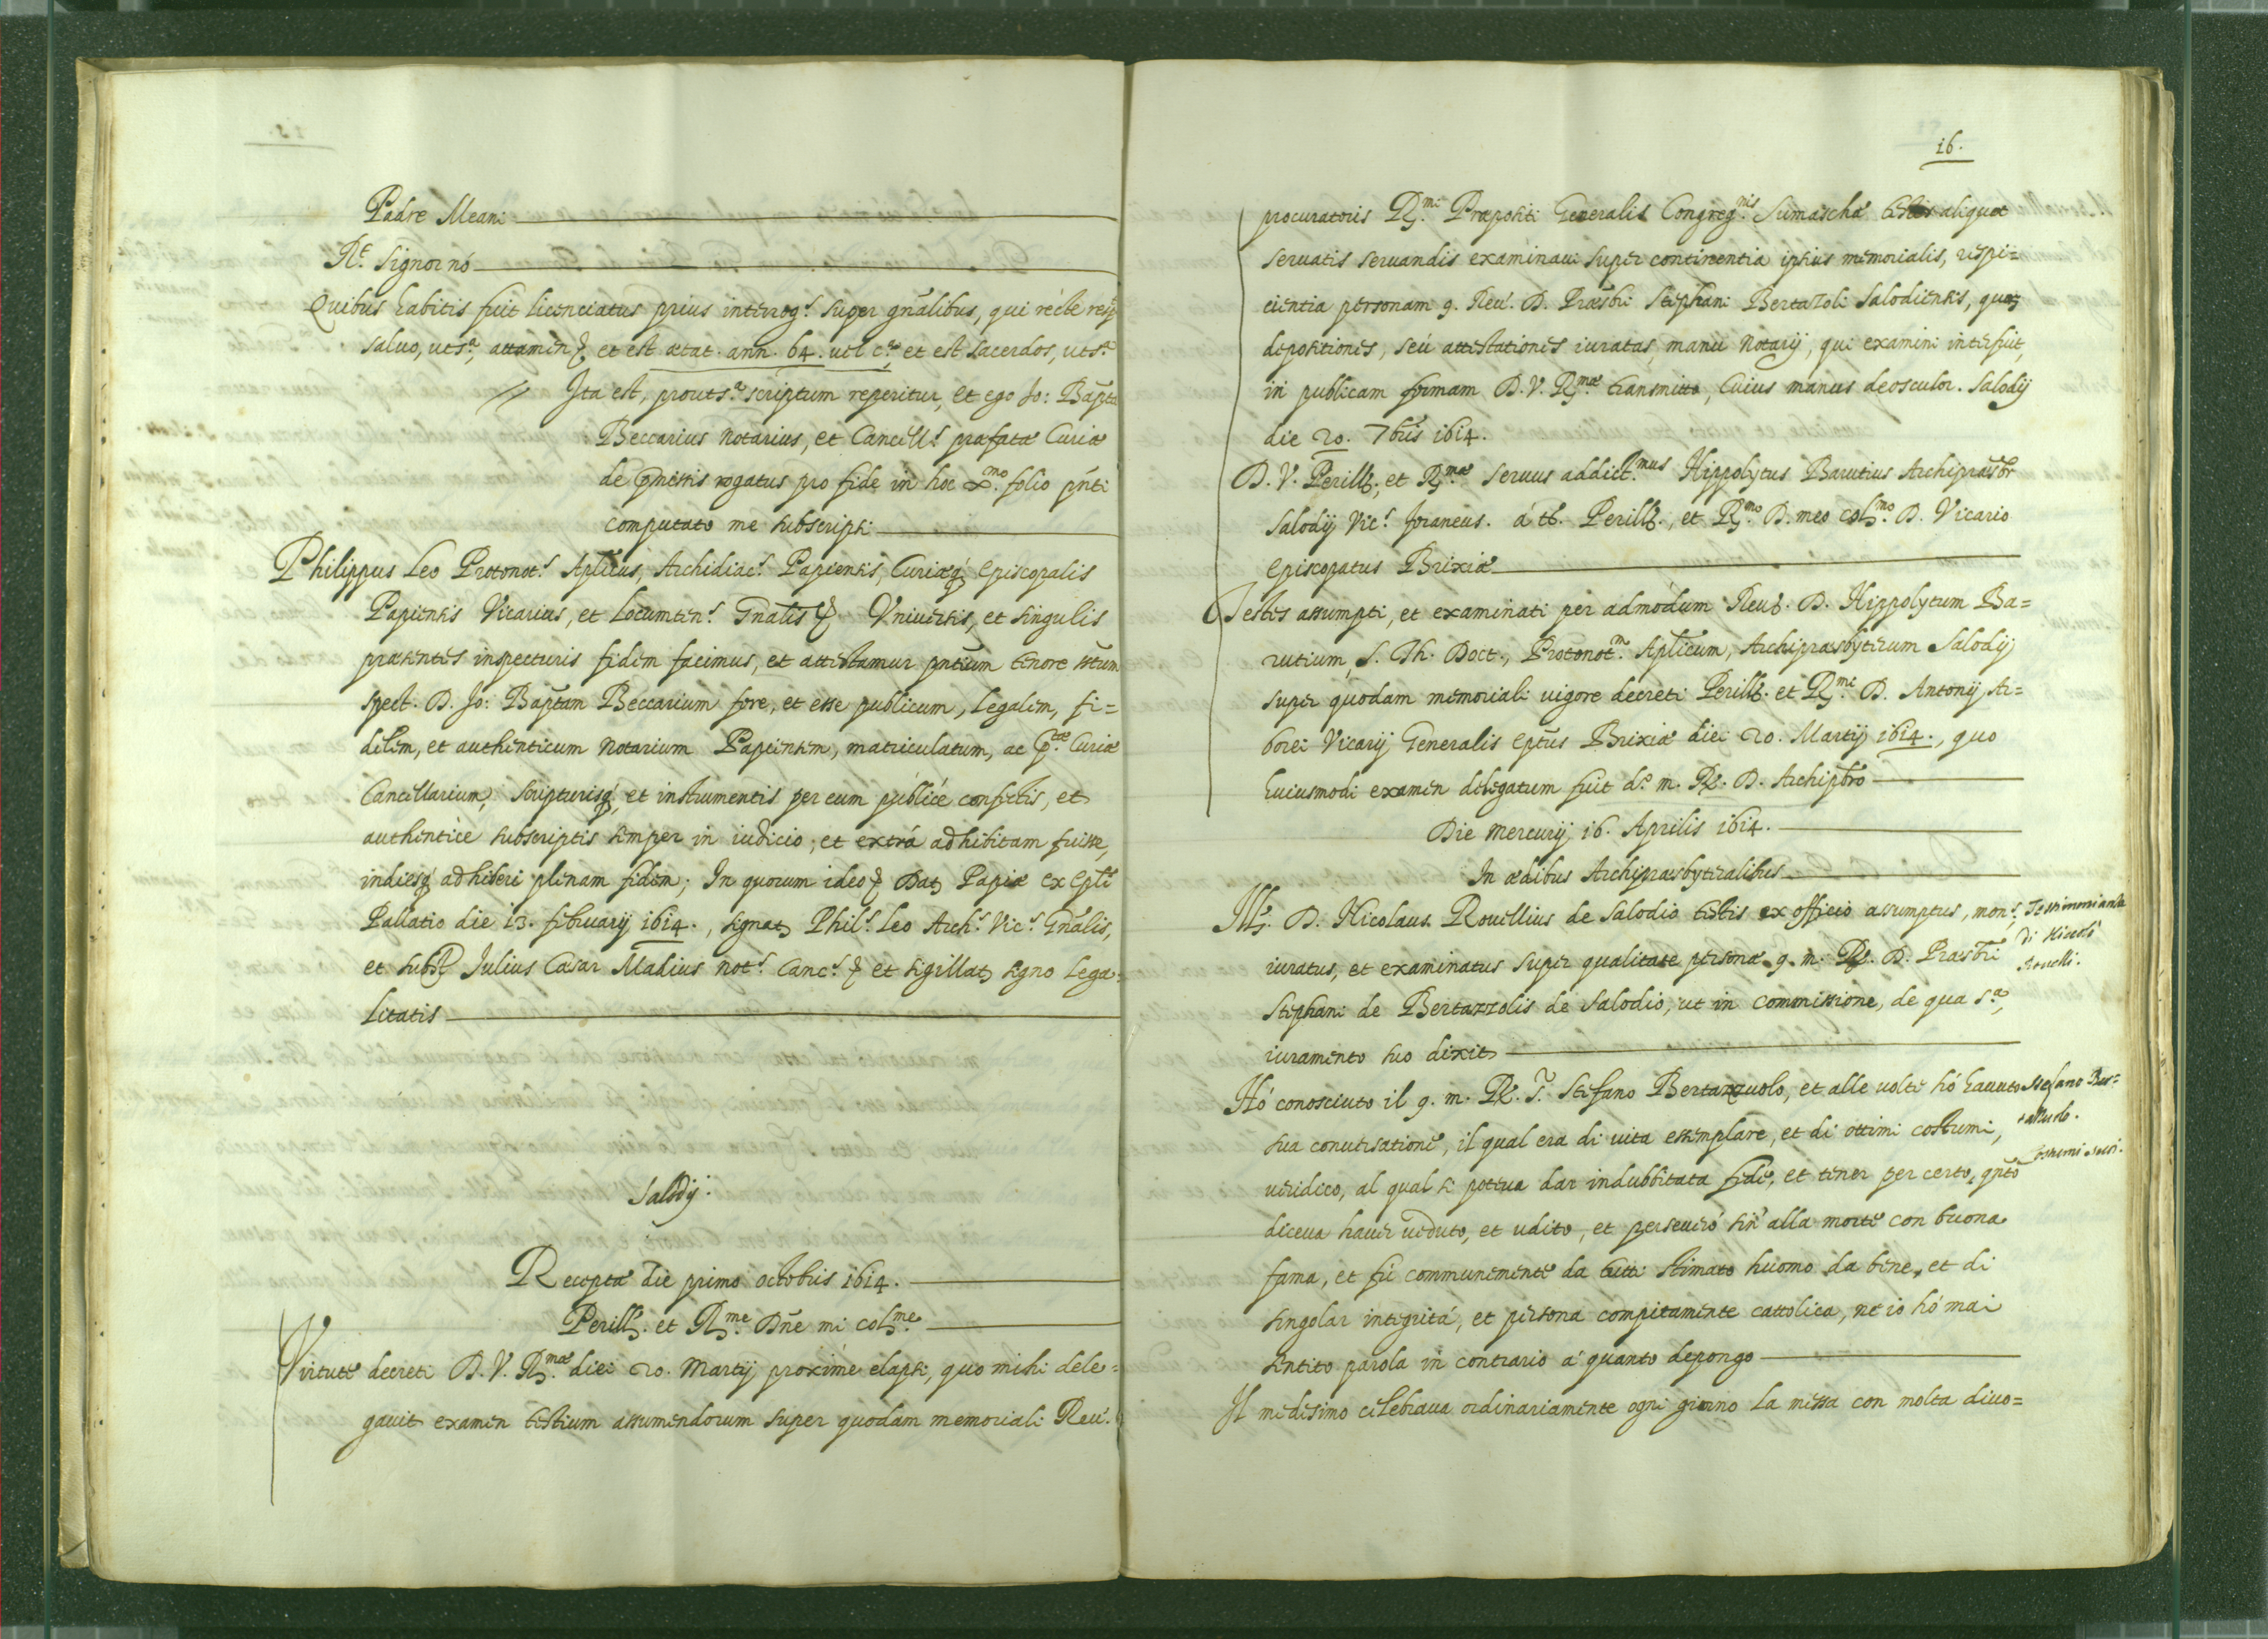 Padre Meani
R.t Signor nó
Quibus habitis fuit licenciatus prius interrog.s super gñalibus, qui récte resp
saluo, uts.a, attamen et est ætat. ann. 64. uel c.a et est sacerdos, uts.a
Ita est, prouts.a scriptum reperitur, et ego Jo: Bapta
Beccarius notarius, et Cancell.s præfatæ Curiæ
de pmissis rogatus pro fide in hoc folio pñti
computato me subscripsi
Philippus Leo Protonot.s Aplicus, Archidiac.s Papiensis, Curiæq; Episcopalis
Papiensis Vicarius, et Locumten.s Gñalis Vniuersis, et singulis
præsentes inspecturis fidem facimus, et attestamur pñtium tenore
spect. D. Jo: Baptam Beccarium fore, et esse publicum, legalem, fi=
delem, et authenticum notarium Papiensem, matriculatum, ac p.tæ Curiæ
Cancellarium, scripturisq; et instrumentis per eum públicé confectis, et
authenticè subscriptis semper in iudicio, et extrá adhibitam fuisse,
indiesq; adhiberi plenam fidem; In quorum ideo Dat Papiæ ex Epli
Pallatio die 13. februarij 1614., signat Phil.s Leo Arch.s Vic.s Gñalis,
et subsc Julius Cæsar Madius not.s Canc.s et sigillat signo lega=
litatis
Salodij.
Recepta die primo octobris 1614.
Perill. et R.me Dñe mi col.me
Virtute decreti D. V. R.mæ diei 20. Martij proximé elapsi, quo mihi dele=
gauit examen testium assumendorum super quodam memoriali Reu.
16.
procuratoris R.mi Præpositi Generalis Congreg.nis Sumaschæ aliquot
seruatis seruandis examinaui super continentia ipsius memorialis, respi=
cientia personam q. Reu. D. Præsbri Stephani Bertazoli Salodiensis, quas
depositiones, seú attestationes iuratas, manu Notarij, qui examini interfuit,
in publicam formam D. V. R.mæ transmitto, cuius manus deosculor. Salodij
die 20. 7bris 1614.
D. V. Perill., et R.mæ seruus addict.mus Hippolytus Barutius Archipræsbr
Salodij Vic.s foraneus. á t. Perill., et R.mo D. meo col.mo D. Vicario
Episcopatus Brixiæ
Testes assumpti, et examinati per admòdum Reu. D. Hippolytum Ba=
rutium, S. Th. Doct., Protonot.m Aplicum, Archipræsbyterum Salodij
super quodam memoriali uigore decreti Perill. et R.mi D. Antonij Ar=
borei Vicarij Generalis Eptus Brixiæ diei 20. Martij 1614., quo
huiusmodi examen delegatum fuit d.o m. R. D. Archipbro
Die mercurij 16. Aprilis 1614.
In ædibus Archipræsbyteralibus
Ill. D. Nicolaus Rouellius de Salodio testis ex officio assumptus, mon.s,
Testimonianza
di Nicolò
Rouelli.
iuratus, et examinatus super qualitate personæ q. m. R. D. Præsbri
Stephani de Bertazzolis de Salodio, ut in commissione, de qua s.a,
iuramento suo dixit
Hó conosciuto il q. m. R. Stefano Bertazzuolo, et alle uolte hó hauuto
Stefano Ber=
tazzuolo.
Costumi suoi.
sua conuersatione, il qual era di uita essemplare, et di ottimi costumi,
ueridico, al qual si poteua dar indubbitata fede, et tener per certo, qñto
diceua hauer ueduto, et udito, et perseueró sin' alla morte con buona
fama, et fú communemente da tutti stimato huomo da bene, et di
singolar integritá, et persona compitamente cattolica, ne io hó mai
sentito parola in contrario á quanto depongo
Il medesimo celebraua ordinariamente ogni giorno la messa con molta diuo=